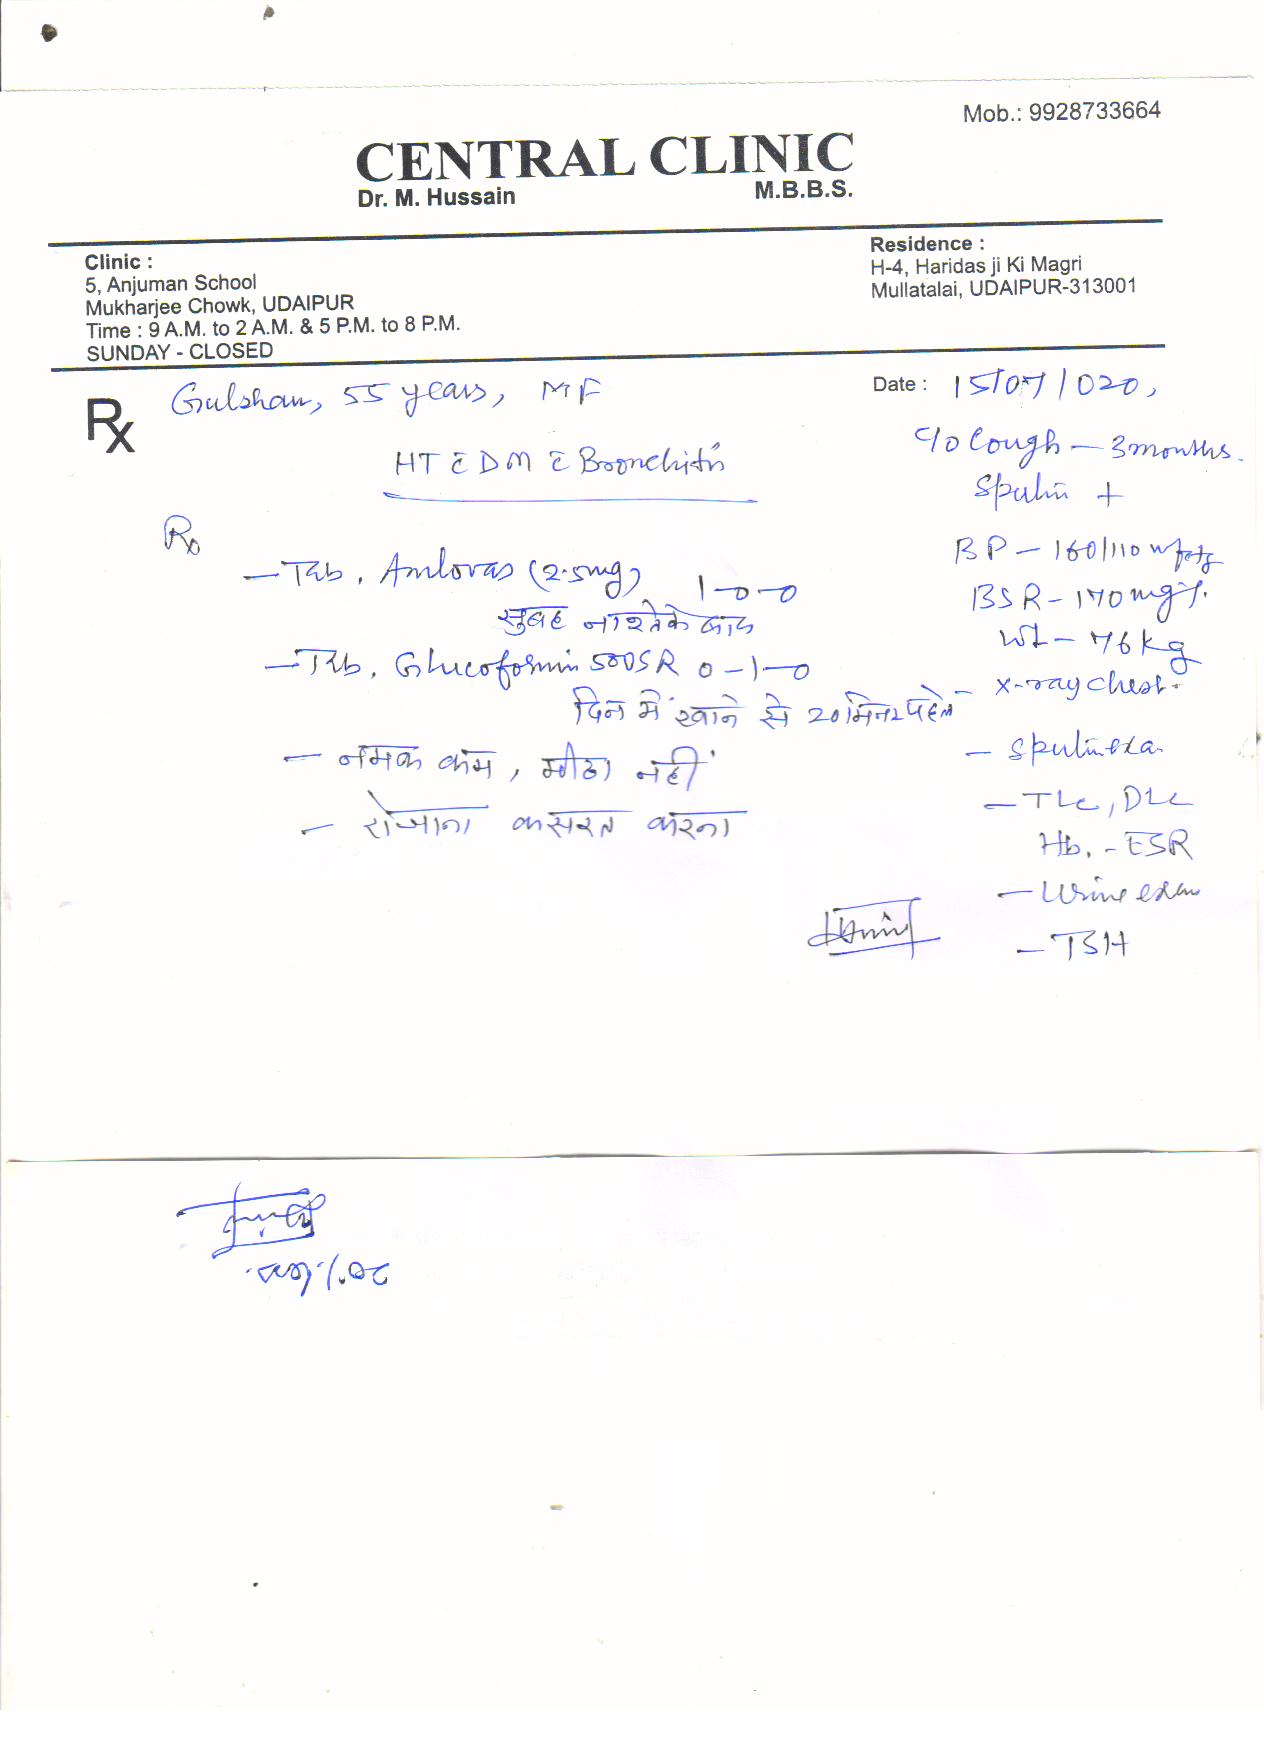 Mob.: 9928733664
CENTRAL CLINIC
Dr. M. Hussain M.B.B.S.
Clinic :
5, Anjuman School
Mukharjee Chowk, UDAIPUR
Time : 9 A.M. to 2 A.M. & 5 P.M. to 8 P.M.
SUNDAY - CLOSED
Residence :
H-4, Haridas ji Ki Magri
Mullatalai, UDAIPUR-313001
Rx Gulshan, 55 years, MF
Date : 15/07/020,
HT c̄ DM c̄ Bronchitis
Rx
- Tab. Amlovas (2.5mg) 1-0-0
सुबह नाश्ते के बाद
- Tab. Glucoformin 500SR 0-1-0
दिन में खाने से 20 मिनट पहले
- नमक कम, मीठा नहीं
- रोजाना कसरत करना
C/o Cough - 3 months.
Sputum +
BP - 160/110 mmHg
BSR - 170 mg%.
Wt - 76 kg
- X-ray chest.
- Sputum exa.
- TLC, DLC
Hb. - ESR
- Urine exam
- TSH